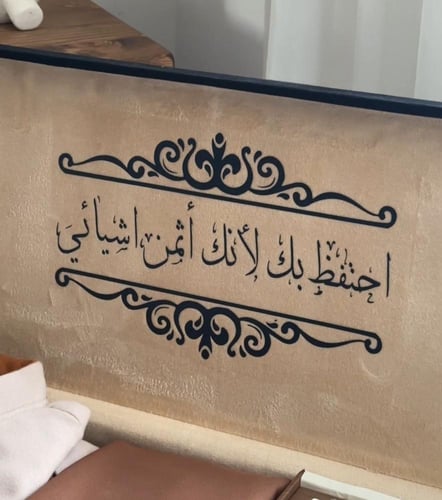 احتفظ بك لأنك أثمن اشيائي